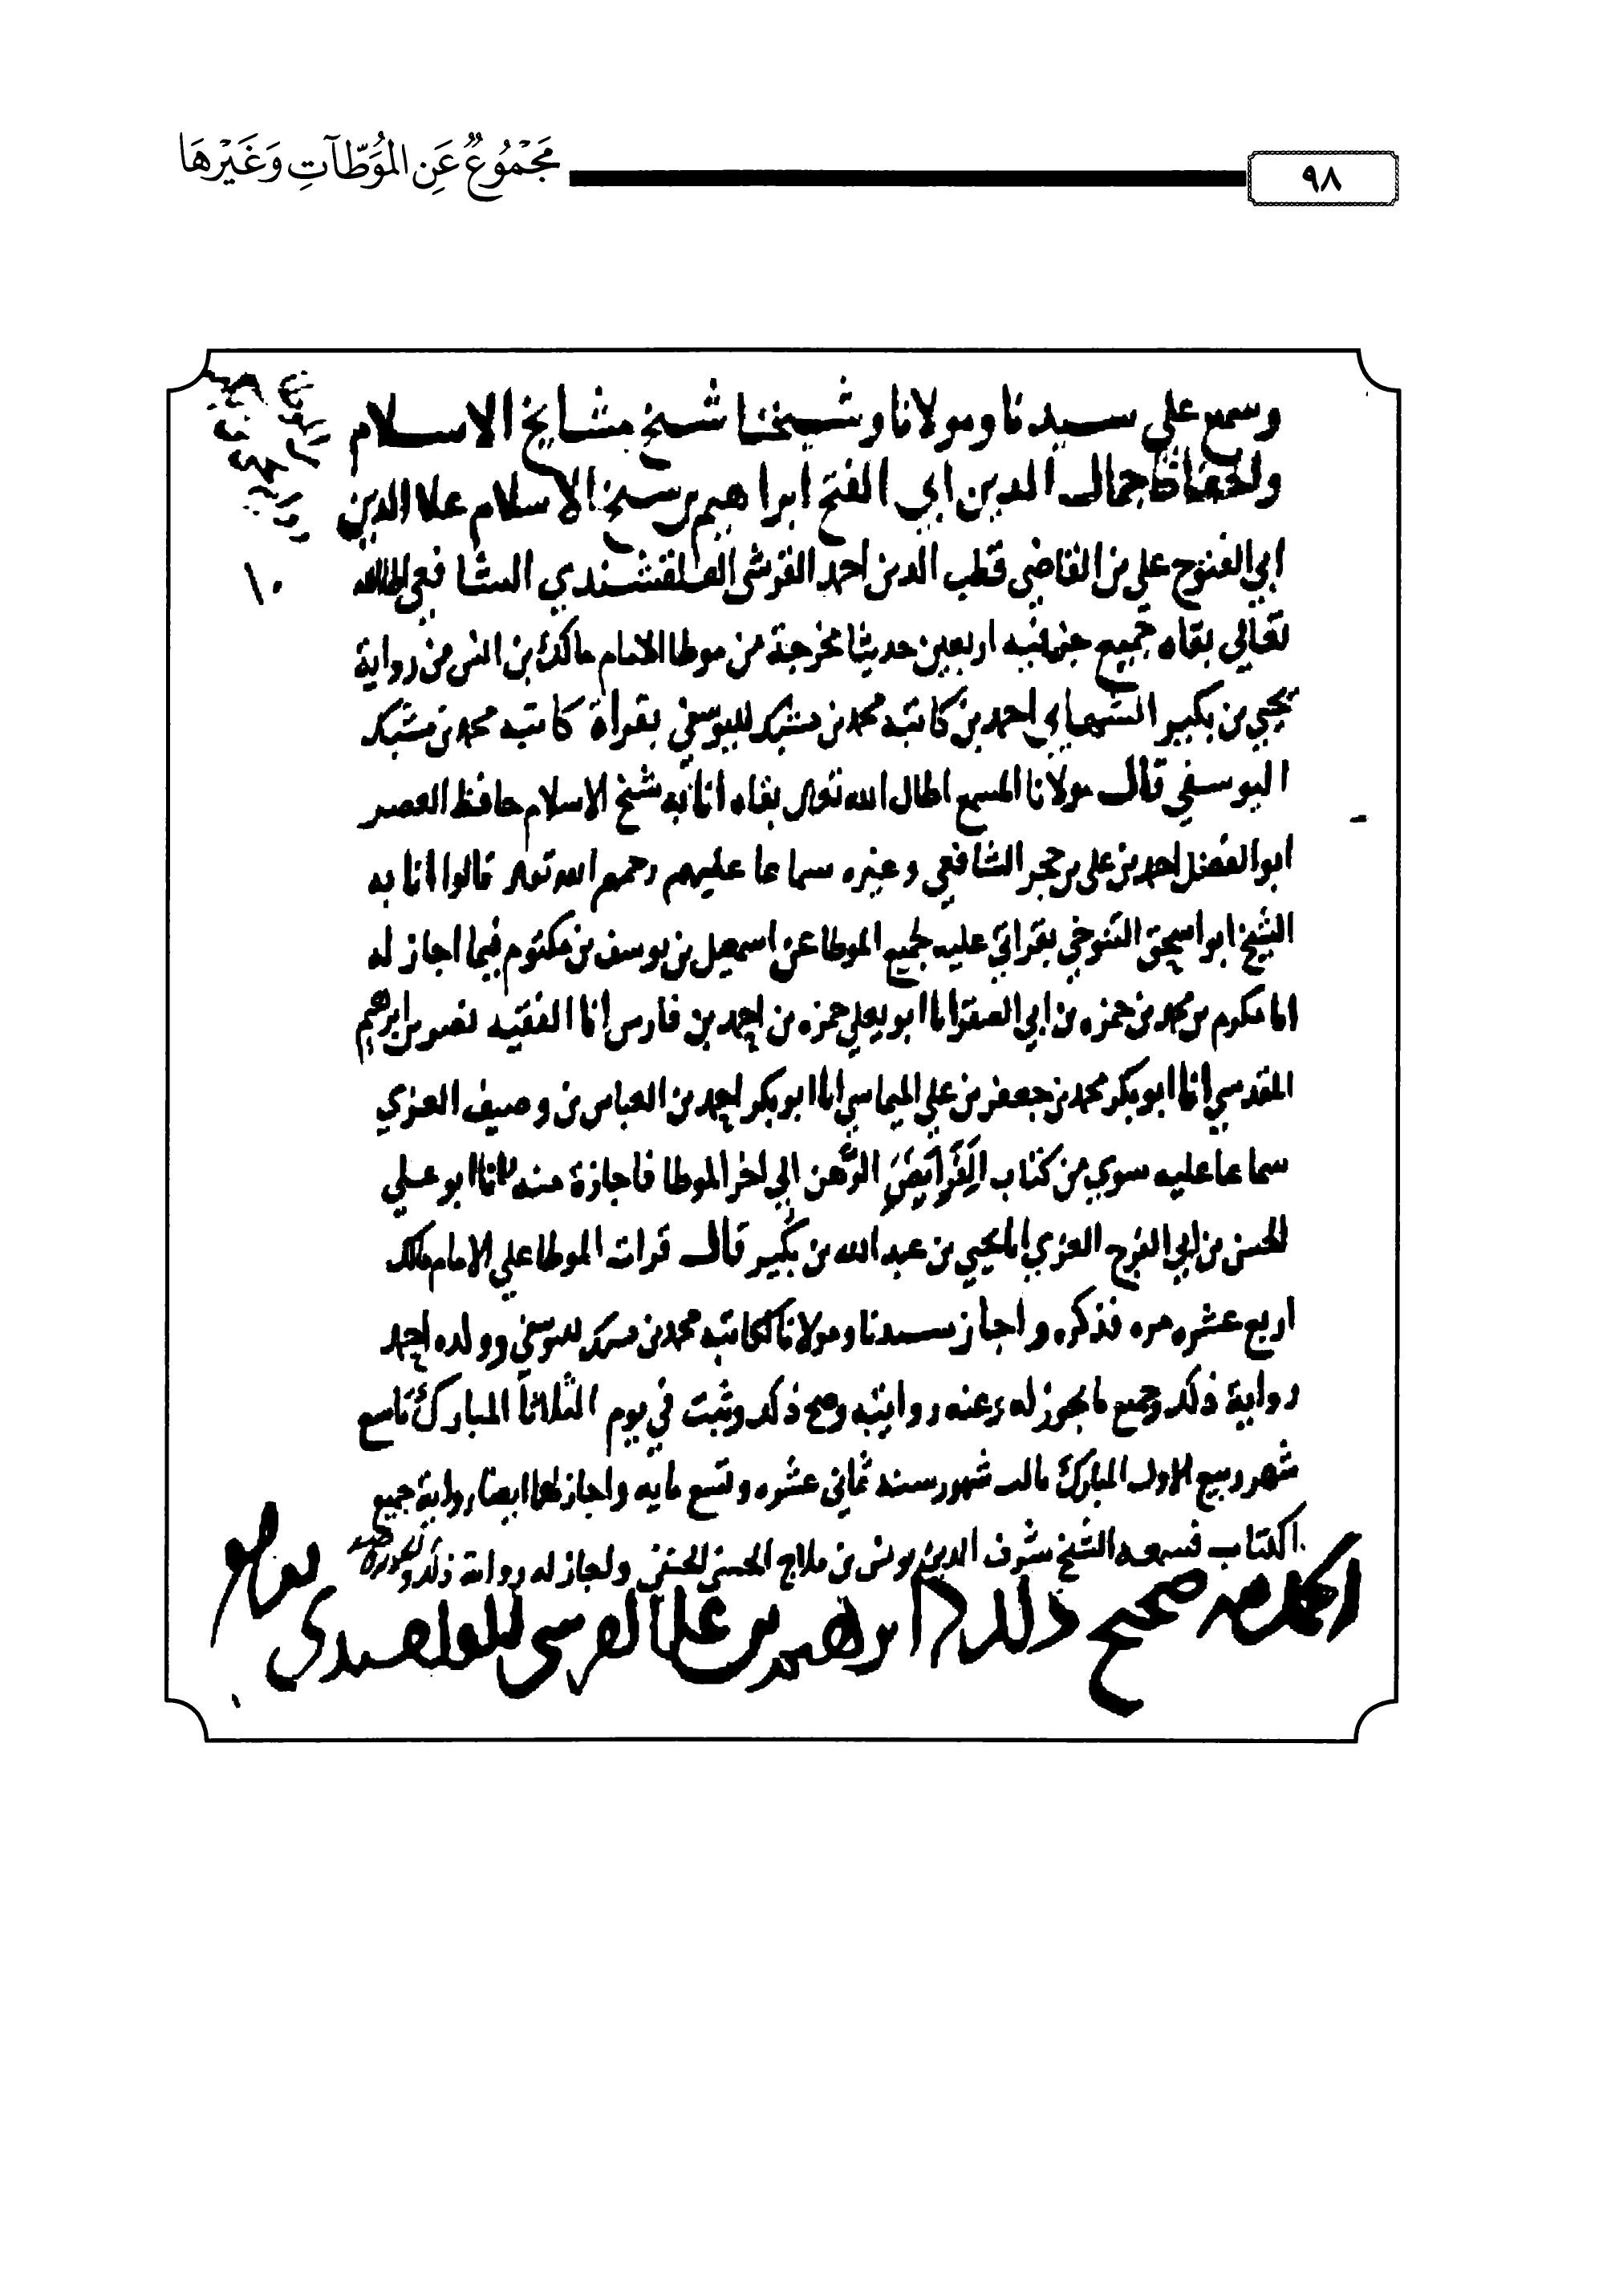 ٩٨
مَجْمُوعٌ عَنِ المُوَطَّآتِ وَغَيْرِهَا
وسمع علي سيدنا ومولانا وشيخنا شيخ مشايخ الاسلام
والحفاظ جمال الدين ابي الفتح ابراهيم بن شيخ الاسلام علا الدين
ابي الفتوح علي بن القاضي قطب الدين احمد القرشي القلقشندي الشافعي اطال الله
تعالي بقاه جميع اربعين حديثا مخرجة من موطا الامام مالك بن انس من رواية
يحيي بن بكير الشهابي احمد بن كاتبه محمد بن مشبك اليوسفي بقراة كاتبه محمد بن مشبك
اليوسفي قال مولانا المسمع اطال الله تعالى بقاه انا به شيخ الاسلام حافظ العصر
ابو الفضل احمد بن علي بن حجر الشافعي وغيره سماعا عليهم رحمهم الله تعالى قالوا انا به
الشيخ ابو اسحق التنوخي بقراتي عليه لجميع الموطا عن اسمعيل بن يوسف بن مكتوم فيما اجاز له
انا مكرم بن محمد بن حمزه بن ابي الصقر انا ابو يعلي حمزه بن احمد بن فارس انا الفقيه نصر بن ابرهيم
المقدسي انا ابو بكر محمد بن جعفر بن علي الميماسي انا ابو بكر احمد بن العباس بن وصيف الغزي
سماعا عليه سوي من كتاب الفرايض الرهن الي اخر الموطا فاجازة منه انا ابو علي
الحسن بن ابي الفرج الغزي انا يحيي بن عبد الله بن بكير قال قرات الموطا علي الامام مالك
اربع عشره مره فذكره واجاز سيدنا ومولانا لكاتبه محمد بن مشبك اليوسفي وولده احمد
رواية ذلك وجميع ما يجوز له وعنه روايته وصح ذلك وثبت في يوم الثلاثا المبارك تاسع
شهر ربيع الاول المبارك ثالث شهور سنة ثماني عشره وتسع مايه واجاز لهما ايضا رواية جميع
الكتاب فسمعه الشيخ شرف الدين يونس بن ملاج الحسني الحنفي واجاز له رواية ذلك
صحيح ذلك ابراهيم بن علي القرشي القلقشندي
١٠